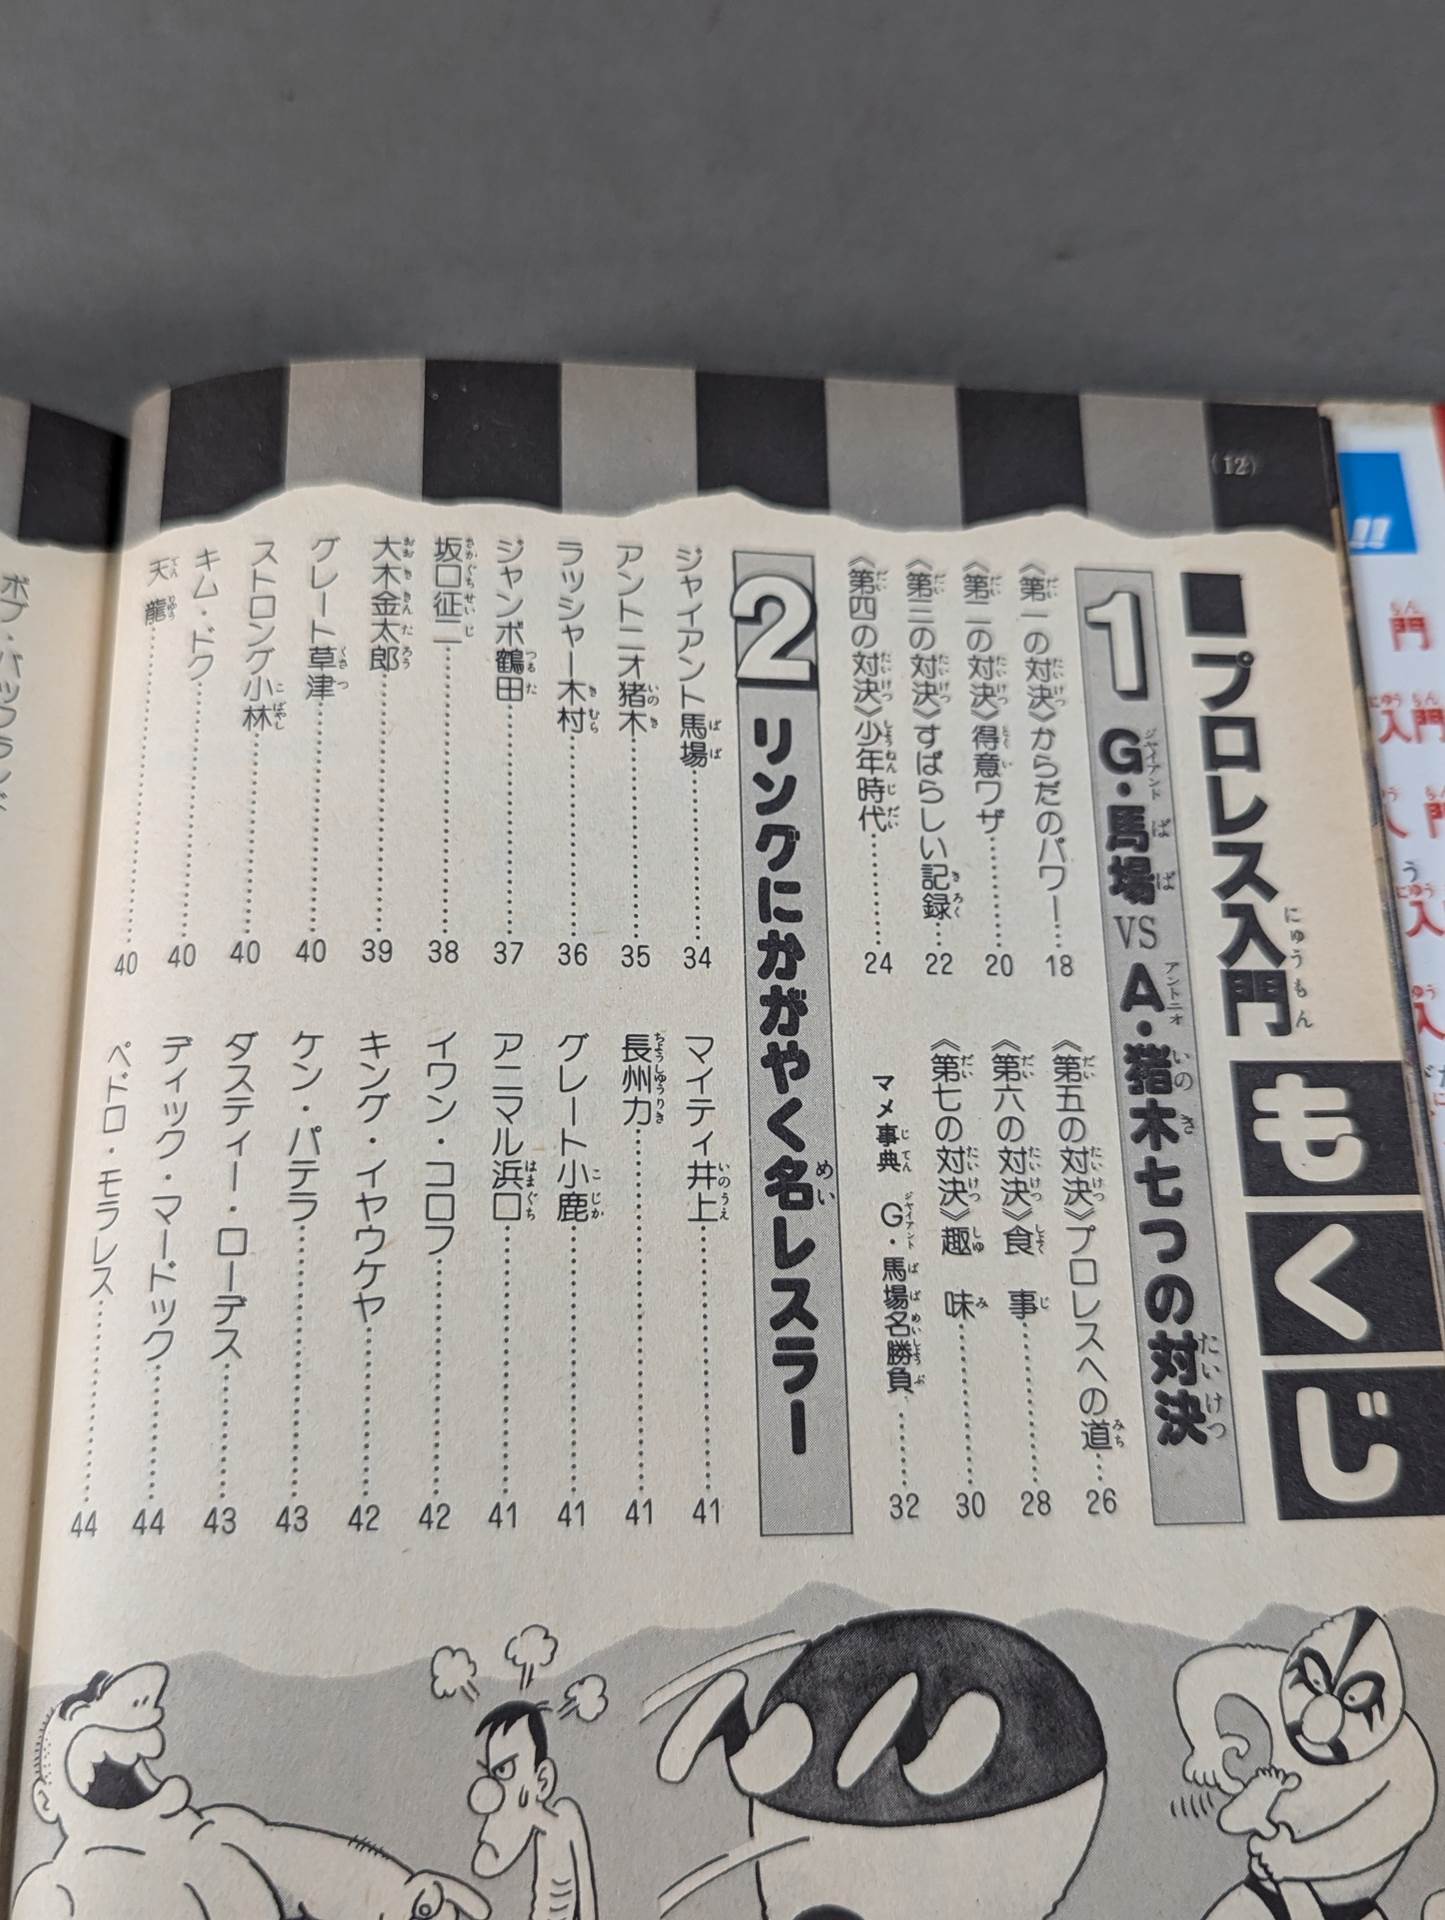 (12)
■プロレス入門 もくじ
1 G・馬場 VS A・猪木七つの対決
《第一の対決》からだのパワー…18
《第二の対決》得意ワザ…20
《第三の対決》すばらしい記録…22
《第四の対決》少年時代…24
《第五の対決》プロレスへの道…26
《第六の対決》食 事…28
《第七の対決》趣 味…30
マメ事典 G・馬場名勝負…32
2 リングにかがやく名レスラー
ジャイアント馬場…34
アントニオ猪木…35
ラッシャー木村…36
ジャンボ鶴田…37
坂口征二…38
大木金太郎…39
グレート草津…40
ストロング小林…40
キム・ドク…40
天龍…40
マイティ井上…41
長州力…41
グレート小鹿…41
アニマル浜口…41
イワン・コロフ…42
キング・イヤウケヤ…42
ケン・パテラ…43
ダスティー・ローデス…43
ディック・マードック…44
ペドロ・モラレス…44
ボブ・バックランド
!!
門
入門
入
入